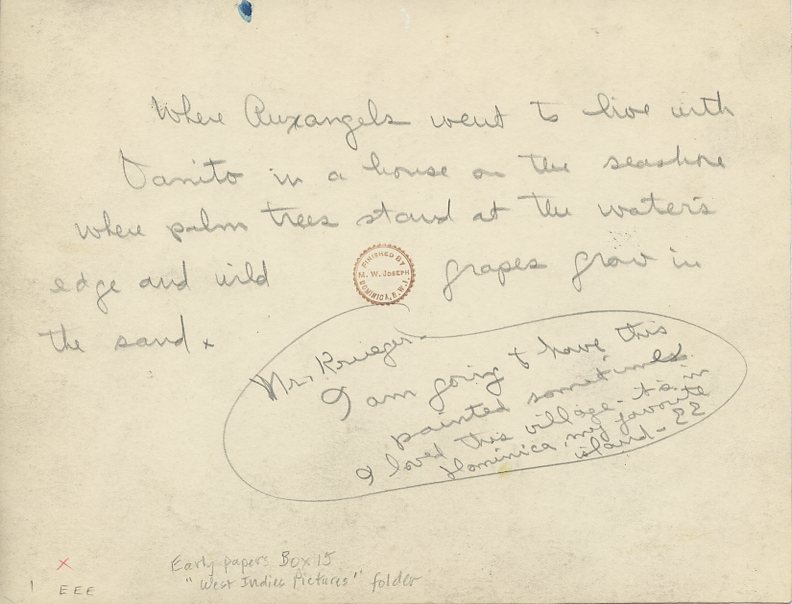 Where Auxangels went to live with
Tanito in a house on the seashore
where palm trees stand at the water's
edge and wild grapes grow in
the sand x
FINISHED BY
M. W. JOSEPH
DOMINICA, B.W.I.
Mr. Krueger -
I am going to have this
painted sometimes.
I loved this village - it's in
Dominica, my favorite
island - EE
Early papers Box 15
"West Indies Pictures" folder
x
1 EEE